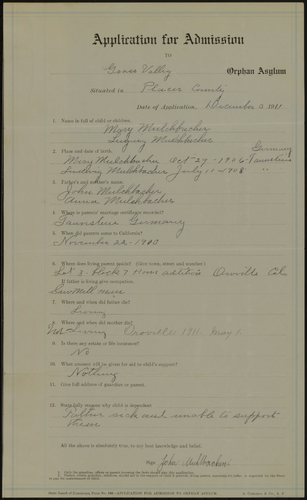 Application for Admission
TO
Grass Valley Orphan Asylum
Situated in Placer County
Date of Application, December 2, 1911
1. Name in full of child or children.
Mary Mulchbacher
Ludwig Mulchbacher
2. Place and date of birth. Germany
Mary Mulchbacher Oct-27-1906-Taunstein
Ludwig Mulchbacher July 11-1908 "
3. Father's and mother's name.
John Mulchbacher
Anna Mulchbacher
4. Where is parents' marriage certificate recorded?
Taunstein Germany
5. When did parents come to California?
November 22-1910
6. Where does living parent reside? (Give town, street and number.)
Lot 3. Block 7 addition Oroville Cal
If father is living give occupation.
Saw Mill
7. Where and when did father die?
Living
8. Where and when did mother die?
Not Living Oroville 1911. May 1.
9. Is there any estate or life insurance?
No
10. What amount will be given for aid in child's support?
Nothing
11. Give full address of guardian or parent.
12. State fully reasons why child is dependent.
Father sick and unable to support
them
All the above is absolutely true, to my best knowledge and belief.
Sign John